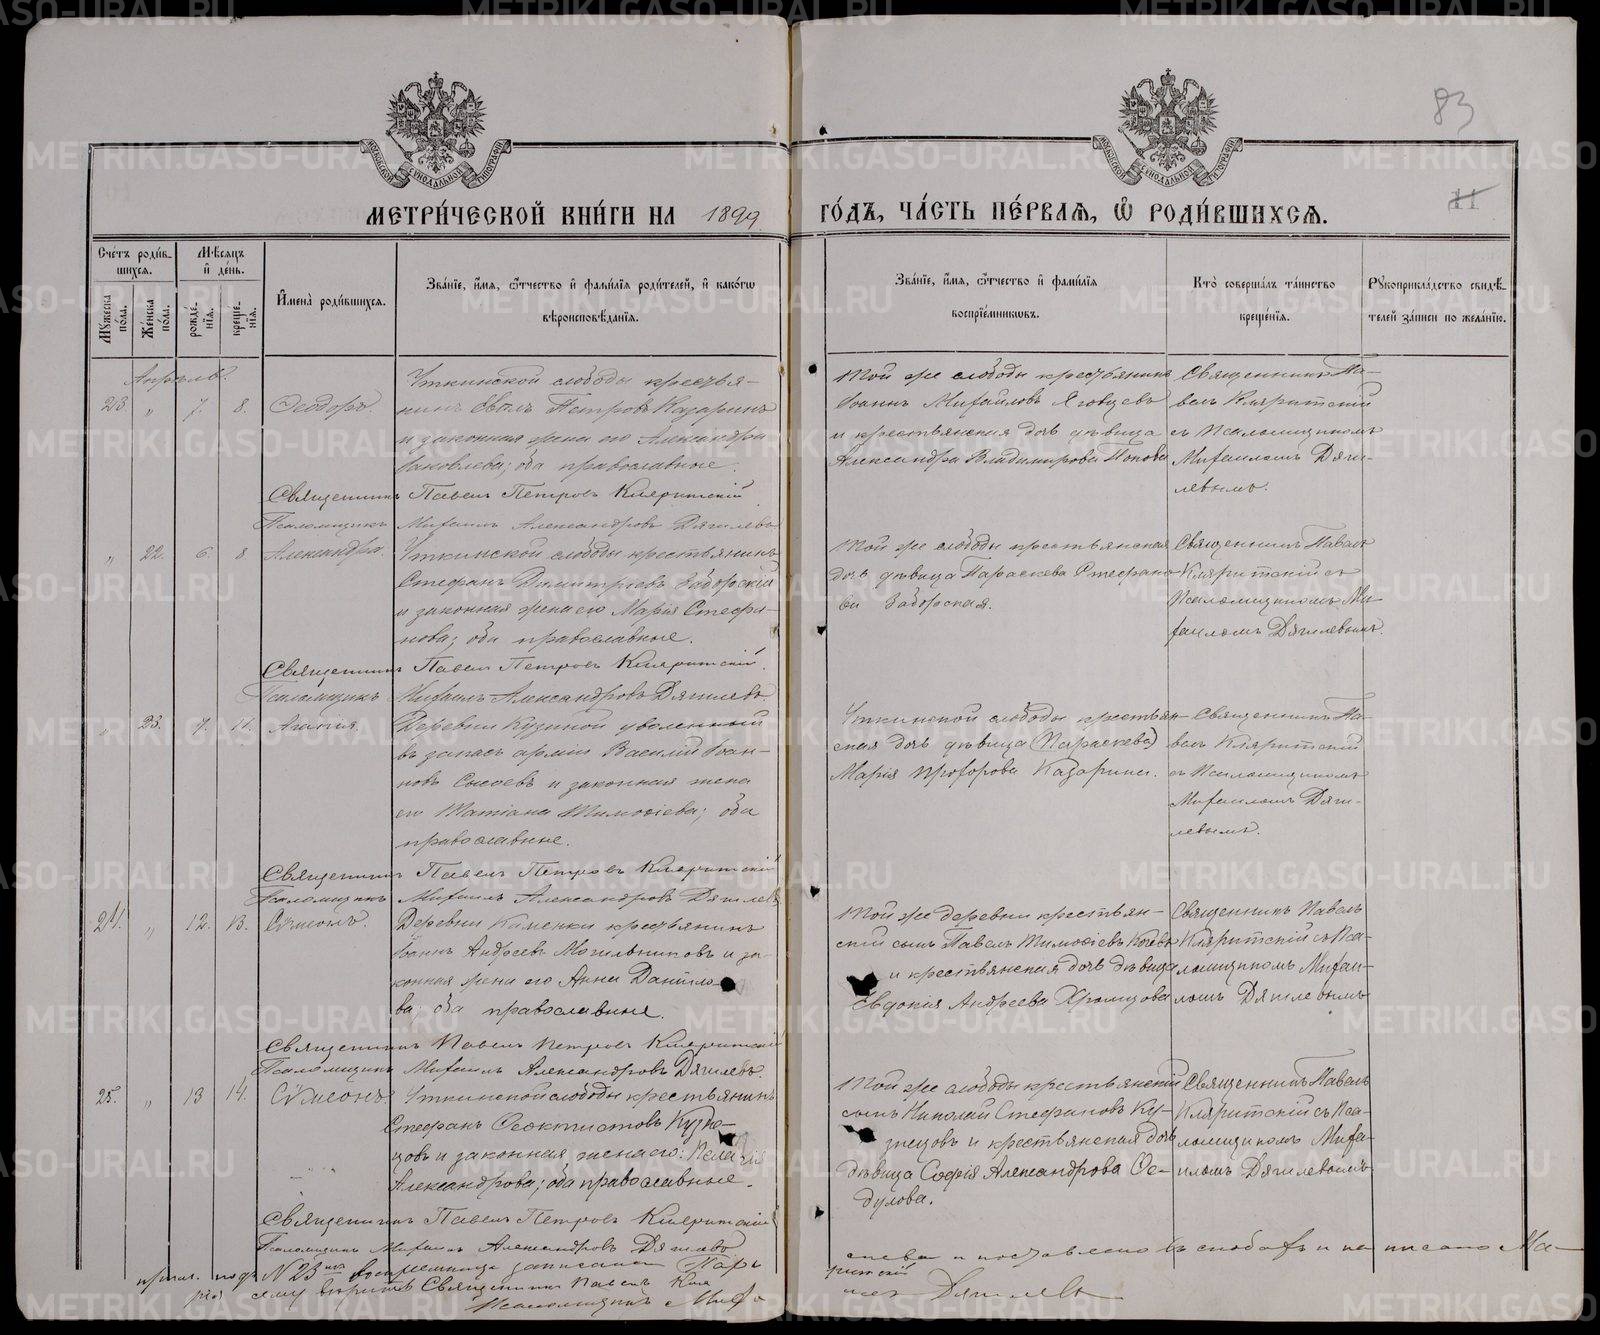 83
11
МЕТРИ́ЧЕСКОЙ КНИ́ГИ НА 1899 ГО́ДЪ, ЧА́СТЬ ПЕ́РВАЯ, Ѡ РОДИ́ВШИХСЯ.
Сче́тъ роди́вшихся.
Мѣ́сяцъ и де́нь.
Му́жеска по́ла.
Же́нска по́ла.
рожде́нія.
креще́нія.
И́мена роди́вшихся.
Зва́ніе, и́мя, ѿчество и фами́лія роди́телей, и како́гѡ вѣроисповѣ́данія.
Зва́ніе, и́мя, ѿчество и фами́лія воспріе́мниковъ.
Кто̀ соверша́лъ та́инство креще́нія.
Рукоприкла́дство свидѣ́телей за́писи по жела́нію.
Апрѣль.
23 " 7. 8. Ѳеодоръ.
Уткинской слободы крестья-
нинъ Петровъ Казаринъ
и законная жена его Александра
Яковлева; оба православные.
Той же слободы крестьянинъ
Іоаннъ Михайловъ Яговцевъ
и крестьянская дочь дѣвица
Александра Владимирова Попова
Священникъ Па-
велъ Кляритскій
съ Псаломщикомъ
Михаиломъ Дяги-
левымъ.
Священникъ Павелъ Петровъ Кляритскій
Псаломщикъ Михаилъ Александровъ Дягилевъ
" 22. 6. 8. Александра.
Уткинской слободы крестьянинъ
Стефанъ Димитріевъ Заборскій
и законная жена его Марія Стефа-
нова; оба православные.
Той же слободы крестьянская
дочь дѣвица Параскева Стефано-
ва Заборская.
Священникъ Павелъ
Кляритскій съ
Псаломщикомъ Ми-
хаиломъ Дягилевымъ.
Священникъ Павелъ Петровъ Кляритскій.
Псаломщикъ Михаилъ Александровъ Дягилевъ
" 23. 7. 11. Агапія.
Деревни Кузиной уволенный
въ запасъ арміи Василій Іоан-
новъ Сысоевъ и законная жена
его Татіана Тимоѳіева; оба
православные.
Уткинской слободы крестьян-
ская дочь дѣвица (Параскева)
Марія Прохорова Казарина.
Священникъ Па-
велъ Кляритскій
съ Псаломщикомъ
Михаиломъ Дяги-
левымъ.
Священникъ Павелъ Петровъ Кляритскій
Псаломщикъ Михаилъ Александровъ Дягилевъ
24. " 12. 13. Сѵмеонъ.
Деревни Каменки крестьянинъ
Іоаннъ Андреевъ Могильниковъ и за-
конная жена его Анна Данило-
ва; оба православные.
Той же деревни крестьян-
скій сынъ Павелъ Тимоѳіевъ
и крестьянская дочь дѣвица
Евдокія Андреева Храмцова
Священникъ Павелъ
Кляритскій съ Пса-
ломщикомъ Михаи-
ломъ Дягилевымъ
Священникъ Павелъ Петровъ Кляритскій
Псаломщикъ Михаилъ Александровъ Дягилевъ.
25. " 13 14. Сѵмеонъ
Уткинской слободы крестьянинъ
Стефанъ Ѳеоктистовъ Кузне-
цовъ и законная жена его: Пелагія
Александрова; оба православные.
Той же слободы крестьянскій
сынъ Николай Стефановъ Ку-
знецовъ и крестьянская дочь
дѣвица Софія Александрова Ѳе-
дулова.
Священникъ Павелъ
Кляритскій съ Пса-
ломщикомъ Миха-
иломъ Дягилевымъ
Священникъ Павелъ Петровъ Кляритскій
Псаломщикъ Михаилъ Александровъ Дягилевъ
подъ N 23 воспріемница записана Пара-
скева и поставлено въ скобахъ и написано Ма-
Священникъ Павелъ Кля
ритскій
Псаломщикъ Миха
илъ Дягилевъ
METRIKI.GASO-URAL.RU